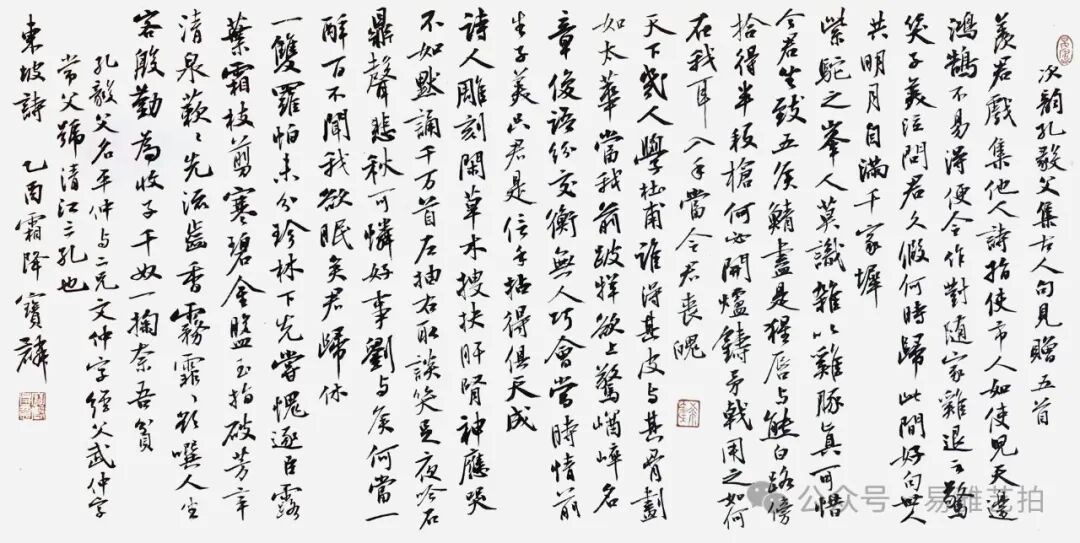 次韵孔毅父集古人句见赠五首
羡君戏集他人诗指使市人如使儿天边
鸿鹄不易得便令作对随家鸡退之惊
笑子美泣问君久假何时归此间好句世人
共明月自满千家墀
紫驼之峰人莫识杂以鸡豚真可惜
今君坐致五侯鲭尽是猩唇与熊白路傍
拾得半段枪何必开炉铸矛戟用之如何
在我耳入手当令君丧魄
天下几人学杜甫谁得其皮与其骨划
如太华当我前跛牂欲上惊崷崒名
章俊语纷交衡无人巧会当时情前
生子美只君是信手拈得俱天成
诗人雕刻闲草木搜抉肝肾神应哭
不如默诵千万首左抽右取谈笑足夜吟石
鼎声悲秋可怜好事刘与侯何当一
醉百不问我欲眠矣君归休
一双罗帕未分珍林下先尝愧逐臣露
叶霜枝剪寒碧金盘玉指破芳辛
清泉蔌々先流齿香雾霏々欲噀人坐
客殷勤为收子千奴一掬奈吾贫
孔毅父名平仲与二兄文仲字经父武仲字
常父号清江三孔也
东坡诗 乙酉霜降宝麟
公众号·易雅艺拍